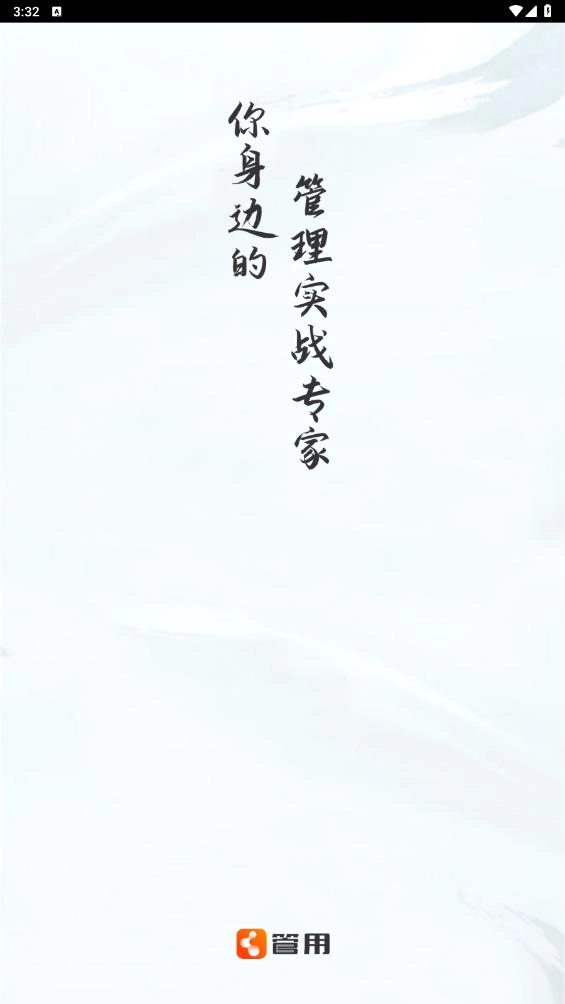 3:32
你身边的
管理实战专家
管用